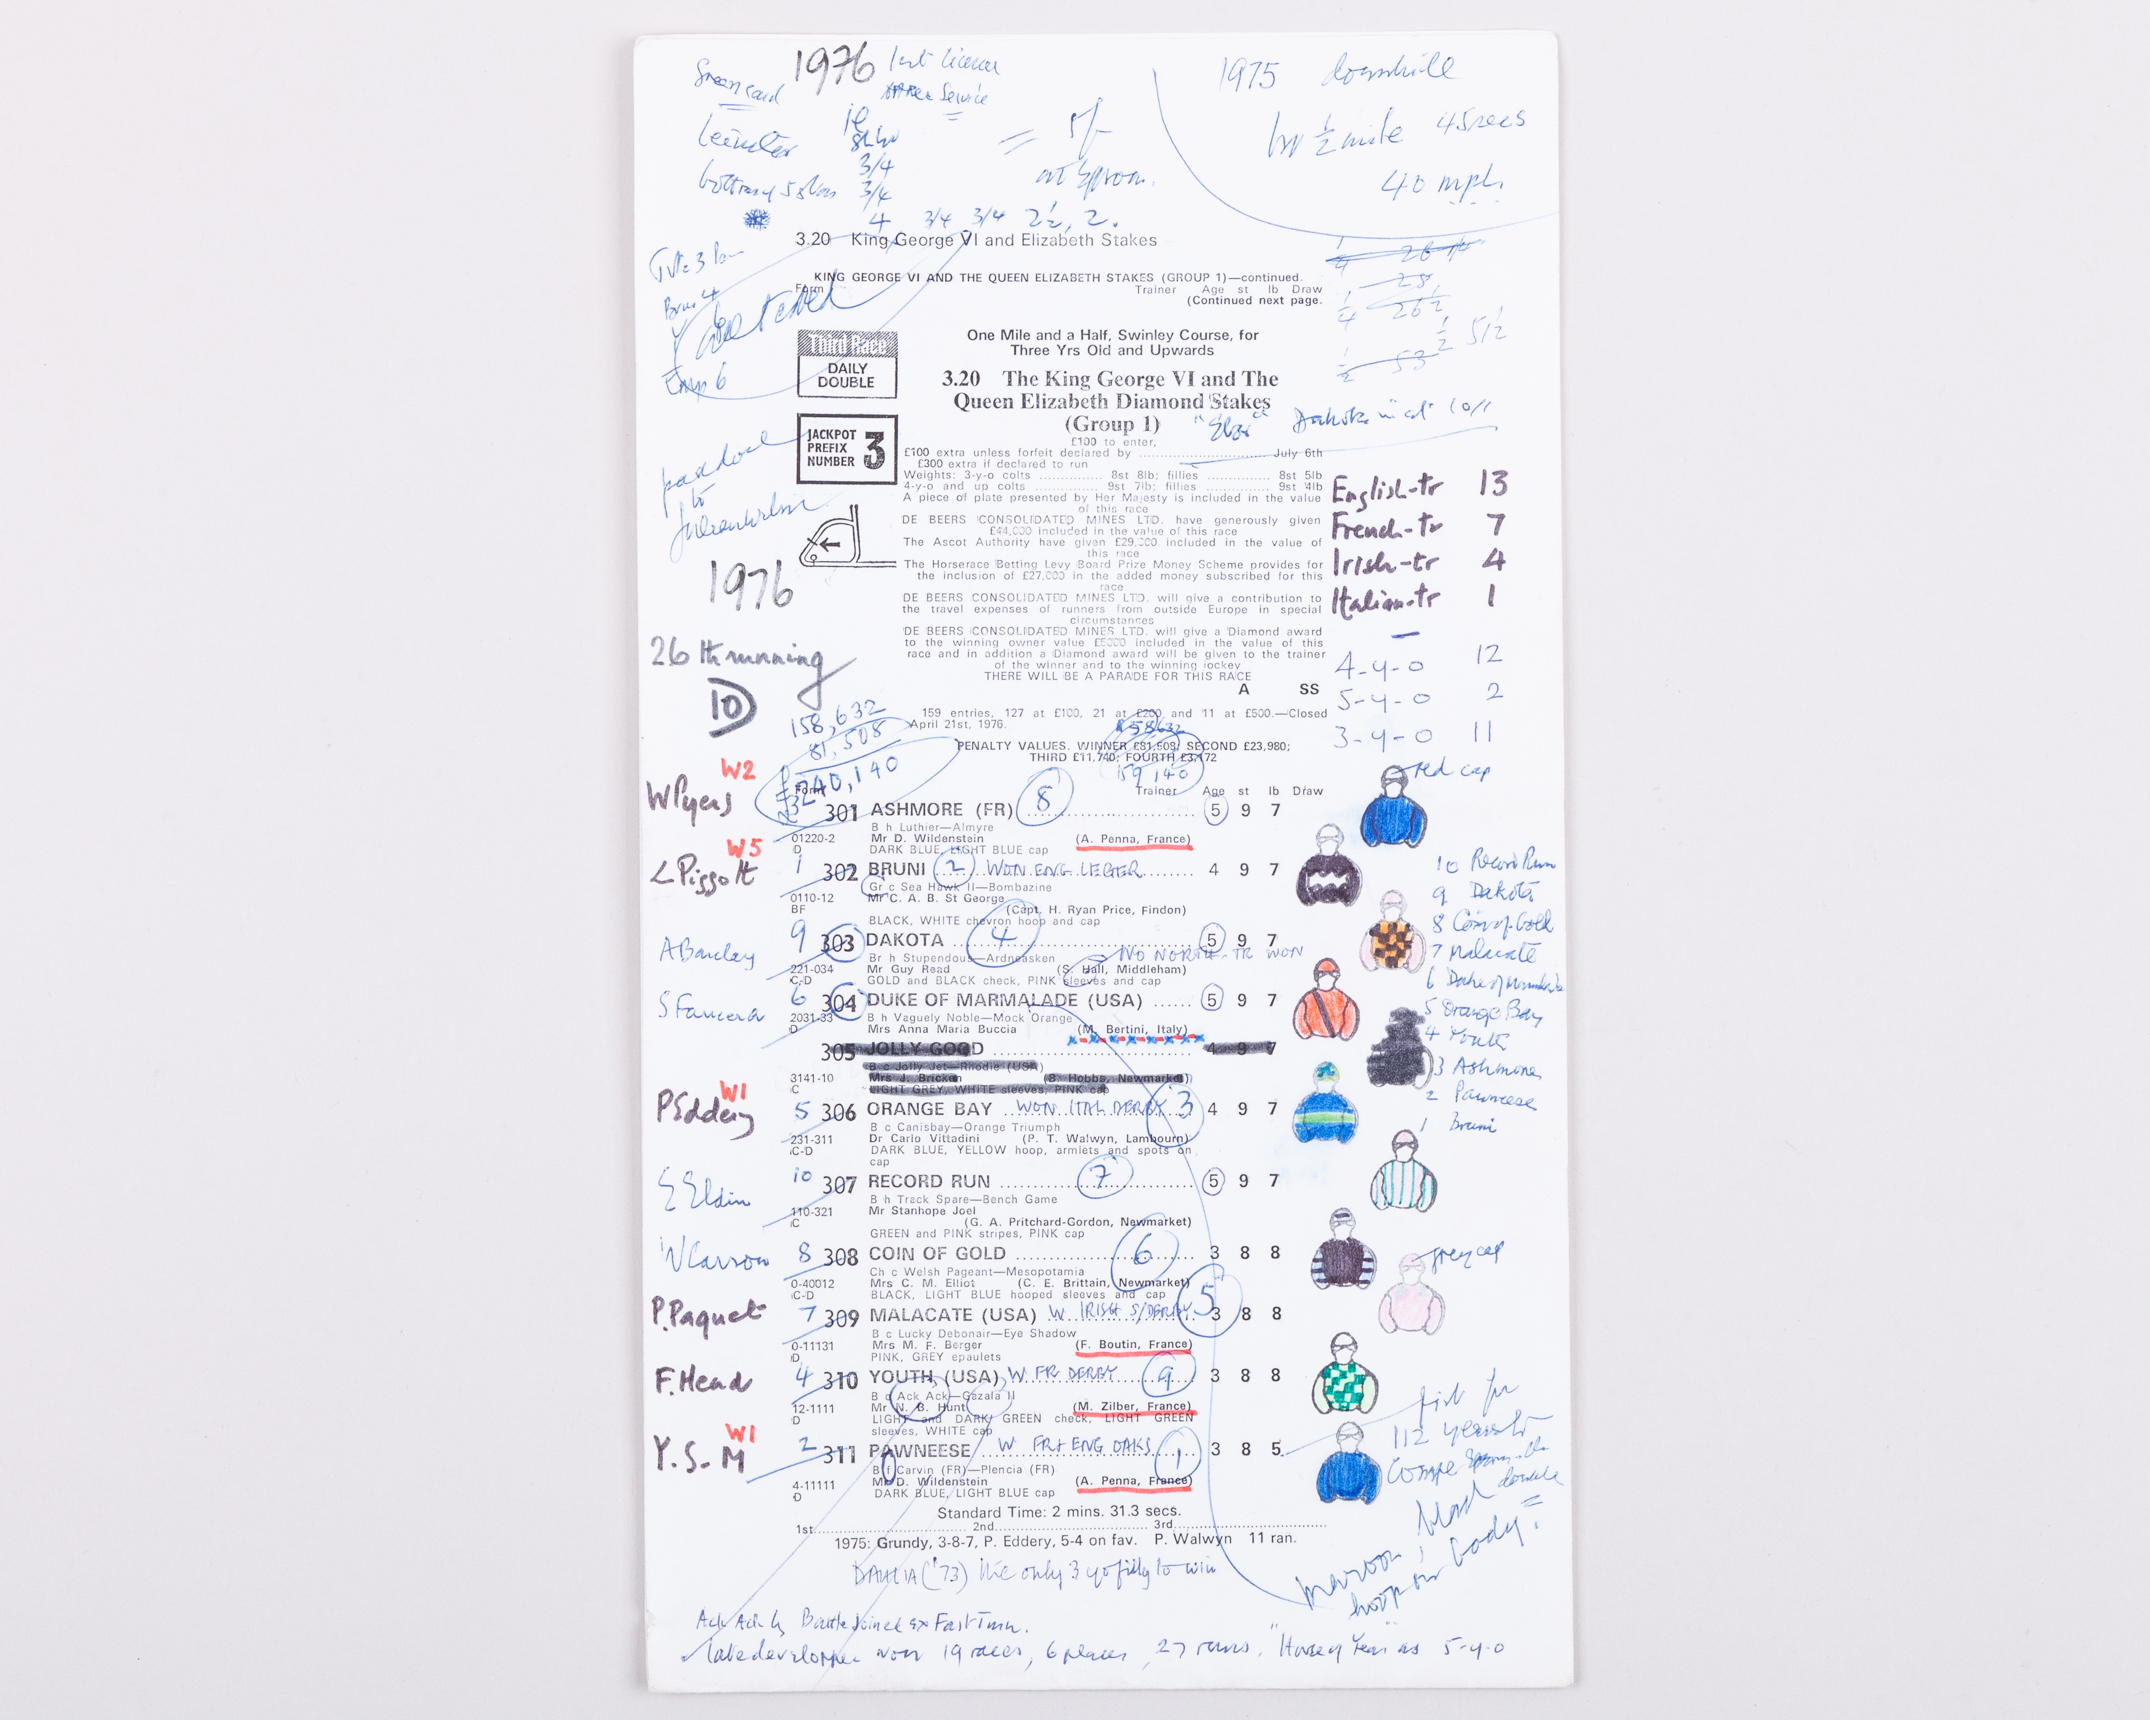 1976
1975 downhill
1st ½ mile 45 secs
40 mph.
= 5/-
3/4
3/4
4 3/4 3/4 2½, 2.
3.20 King George VI and Elizabeth Stakes
KING GEORGE VI AND THE QUEEN ELIZABETH STAKES (GROUP 1)—continued.
Form Trainer Age st lb Draw
(Continued next page.
One Mile and a Half, Swinley Course, for
Three Yrs Old and Upwards
Third Race
DAILY
DOUBLE
3.20 The King George VI and The
Queen Elizabeth Diamond Stakes
(Group 1)
JACKPOT
PREFIX
NUMBER 3
£100 to enter,
£100 extra unless forfeit declared by ............ July 6th
£300 extra if declared to run
Weights: 3-y-o colts ............ 8st 8lb; fillies ............ 8st 5lb
4-y-o and up colts ............ 9st 7lb; fillies ............ 9st 4lb
A piece of plate presented by Her Majesty is included in the value
of this race
DE BEERS CONSOLIDATED MINES LTD. have generously given
£44,000 included in the value of this race
The Ascot Authority have given £29,000 included in the value of
this race
The Horserace Betting Levy Board Prize Money Scheme provides for
the inclusion of £27,000 in the added money subscribed for this
race
DE BEERS CONSOLIDATED MINES LTD. will give a contribution to
the travel expenses of runners from outside Europe in special
circumstances
DE BEERS CONSOLIDATED MINES LTD. will give a Diamond award
to the winning owner value £5000 included in the value of this
race and in addition a Diamond award will be given to the trainer
of the winner and to the winning jockey
THERE WILL BE A PARADE FOR THIS RACE
A SS
English-tr 13
French-tr 7
Irish-tr 4
Italian-tr 1
4-y-o 12
5-y-o 2
3-y-o 11
1976
26th running
10
158,632
81,508
£240,140
159 entries, 127 at £100, 21 at £200 and 11 at £500.—Closed
April 21st, 1976.
PENALTY VALUES. WINNER £81,508; SECOND £23,980;
THIRD £11,740; FOURTH £3,172
159,140
Form Trainer Age st lb Draw
W2
W Pyers
301 ASHMORE (FR) 8 5 9 7
B h Luthier—Almyre
01220-2 Mr D. Wildenstein (A. Penna, France)
D DARK BLUE, LIGHT BLUE cap
red cap
W5
L Piggott
1 302 BRUNI 2 WON ENG LEGER 4 9 7
Gr c Sea Hawk II—Bombazine
0110-12 Mr C. A. B. St George
BF (Capt. H. Ryan Price, Findon)
BLACK, WHITE chevron hoop and cap
A Barclay
9 303 DAKOTA 4 5 9 7
NO NORTH-TR WON
Br h Stupendous—Ardneasken
221-034 Mr Guy Read (S. Hall, Middleham)
C-D GOLD and BLACK check, PINK sleeves and cap
S Fancera
6 304 DUKE OF MARMALADE (USA) 5 9 7
B h Vaguely Noble—Mock Orange
2031-33 Mrs Anna Maria Buccia (M. Bertini, Italy)
D
305 JOLLY GOOD 4 9 7
B c Jolly Jet—Rhodie (USA)
3141-10 Mrs J. Bricken (B. Hobbs, Newmarket)
C LIGHT GREY, WHITE sleeves, PINK cap
W1
P Eddery
5 306 ORANGE BAY WON ITAL DERBY 3 4 9 7
B c Canisbay—Orange Triumph
231-311 Dr Carlo Vittadini (P. T. Walwyn, Lambourn)
C-D DARK BLUE, YELLOW hoop, armlets and spots on
cap
E Eldin
10 307 RECORD RUN 7 5 9 7
B h Track Spare—Bench Game
110-321 Mr Stanhope Joel
C (G. A. Pritchard-Gordon, Newmarket)
GREEN and PINK stripes, PINK cap
W Carson
8 308 COIN OF GOLD 6 3 8 8
Ch c Welsh Pageant—Mesopotamia
0-40012 Mrs C. M. Elliot (C. E. Brittain, Newmarket)
C-D BLACK, LIGHT BLUE hooped sleeves and cap
grey cap
P. Paquet
7 309 MALACATE (USA) W. IRISH S/DERBY 5 3 8 8
B c Lucky Debonair—Eye Shadow
0-11131 Mrs M. F. Berger (F. Boutin, France)
D PINK, GREY epaulets
F. Head
4 310 YOUTH (USA) W FR DERBY 9 3 8 8
B c Ack Ack—Gazala II
12-1111 Mr N. B. Hunt (M. Zilber, France)
D LIGHT and DARK GREEN check, LIGHT GREEN
sleeves, WHITE cap
W1
Y. S- M
2 311 PAWNEESE W FR + ENG OAKS 1 3 8 5
B f Carvin (FR)—Plencia (FR)
4-11111 Mr D. Wildenstein (A. Penna, France)
D DARK BLUE, LIGHT BLUE cap
10 Record Run
9 Dakota
8 Coin of Gold
7 Malacate
6 Duke of Marmalade
5 Orange Bay
4 Youth
3 Ashmore
2 Pawneese
1 Bruni
first for
112 years to
double
maroon, black
hoop on body
Standard Time: 2 mins. 31.3 secs.
1st............ 2nd............ 3rd............
1975: Grundy, 3-8-7, P. Eddery, 5-4 on fav. P. Walwyn 11 ran.
DAHLIA ('73) the only 3 yo filly to win
Ack Ack by Battle Joined ex Fast Turn.
late developer won 19 races, 6 places, 27 runs. "Horse of Year" as 5-y-o